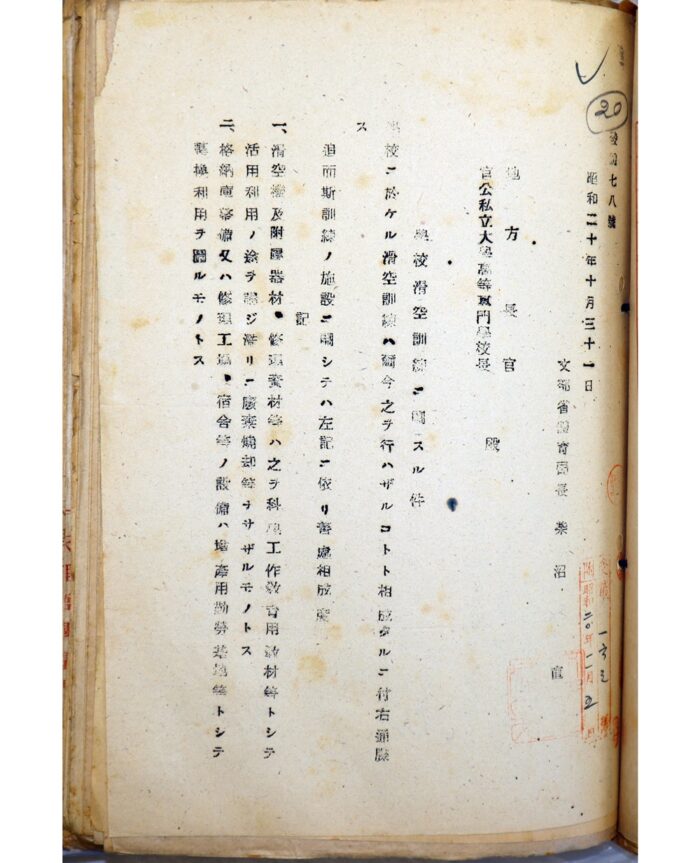 20
七八號
昭和二十年十月三十一日
文部省體育局長 柴沼 直
地方長官
官公私立大學高等專門學校長 殿
學校滑空訓練ニ關スル件
學校ニ於ケル滑空訓練ハ爾今之ヲ行ハザルコトト相成タルニ付右通牒
ス
追而斯訓練ノ施設ニ關シテハ左記ニ依リ善處相成度
記
一、滑空機及附屬器材、修理資材等ハ之ヲ科學工作敎育用敎材等トシテ
活用利用ノ途ヲ講ジ濫リニ廢棄燒却等ヲサザルモノトス
二、格納庫等備又ハ修理工場、宿舍等ノ設備ハ增產用勤勞基地等トシテ
轉換利用ヲ圖ルモノトス